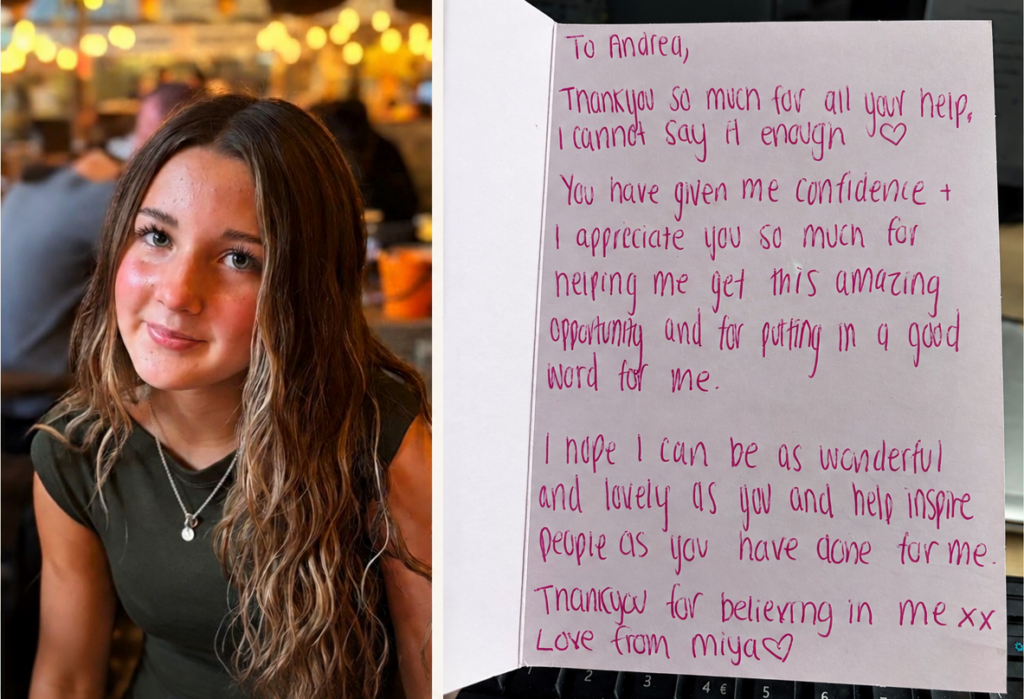 To Andrea,
Thankyou so much for all your help,
I cannot say it enough ♡
You have given me confidence +
I appreciate you so much for
helping me get this amazing
opportunity and for putting in a good
word for me.
I hope I can be as wonderful
and lovely as you and help inspire
people as you have done for me.
Thankyou for believing in me xx
Love from Miya♡
2 3 4 € 5 6